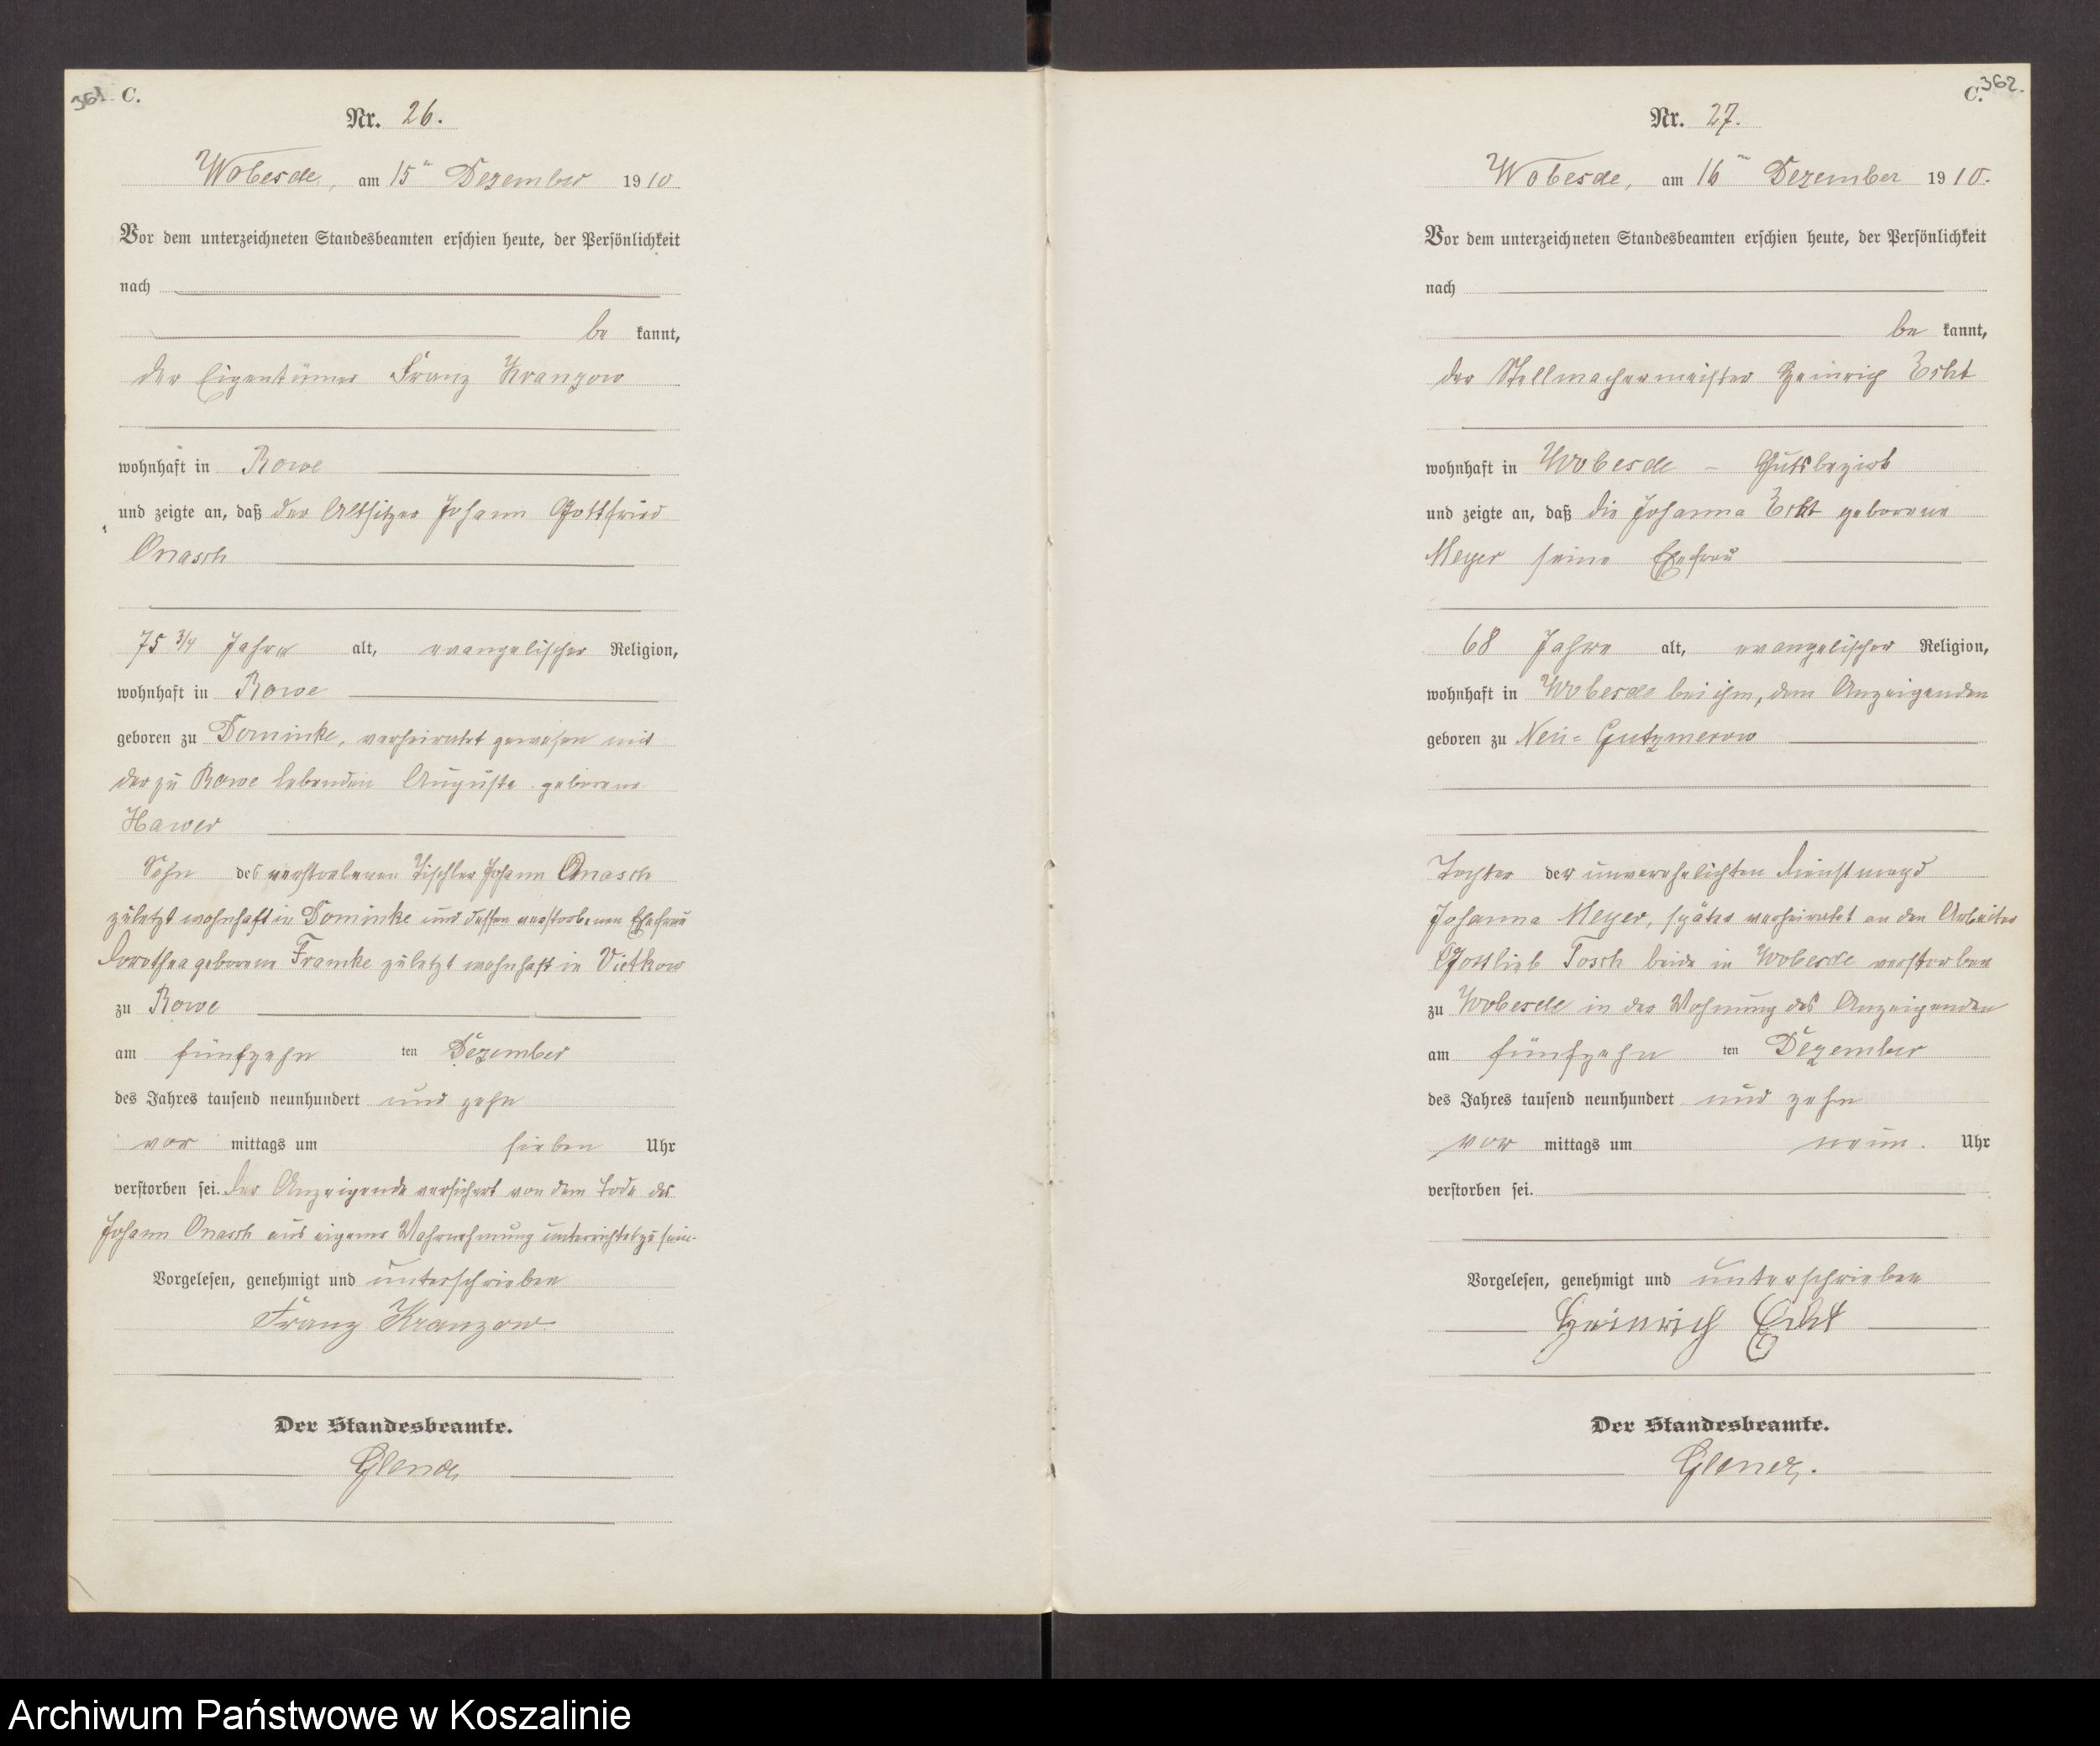 361. C.
Nr. 26.
Wobesde, am 15ⁿ Dezember 1910
Vor dem unterzeichneten Standesbeamten erschien heute, der Persönlichkeit
nach
be kannt,
der Eigentümer Franz Kranzow
wohnhaft in Rowe
und zeigte an, daß der Altsitzer Johann Gottfried
Onasch
75 3/4 Jahre alt, evangelischer Religion,
wohnhaft in Rowe
geboren zu Dominke, verheiratet gewesen mit
der zu Rowe lebenden Auguste geborene
Hawer
Sohn des verstorbenen Tischler Johann Onasch
zuletzt wohnhaft in Dominke und dessen verstorbenen Ehefrau
Dorothea geborene Framke zuletzt wohnhaft in Vietkow
zu Rowe
am fünfzehn ten Dezember
des Jahres tausend neunhundert und zehn
vor mittags um sieben Uhr
verstorben sei. Der Anzeigende versichert von dem Tode des
Johann Onasch aus eigener Wahrnehmung unterrichtet zu sein.
Vorgelesen, genehmigt und unterschrieben
Franz Kranzow
Der Standesbeamte.
C. 362.
Nr. 27.
Wobesde, am 16ⁿ Dezember 1910.
Vor dem unterzeichneten Standesbeamten erschien heute, der Persönlichkeit
nach
be kannt,
der Stellmachermeister Heinrich Echt
wohnhaft in Wobesde – Gutsbezirk
und zeigte an, daß die Johanna Echt geborene
Meyer seine Ehefrau
68 Jahre alt, evangelischer Religion,
wohnhaft in Wobesde bei ihm, dem Anzeigenden
geboren zu Neu-Gutzmerow
Tochter der unverehelichten Dienstmagd
Johanna Meyer, später verheiratet an den Arbeiter
Gottlieb Tosch beide in Wobesde verstorben
zu Wobesde in der Wohnung des Anzeigenden
am fünfzehn ten Dezember
des Jahres tausend neunhundert und zehn
vor mittags um neun. Uhr
verstorben sei.
Vorgelesen, genehmigt und unterschrieben
Heinrich Echt
Der Standesbeamte.
Archiwum Państwowe w Koszalinie